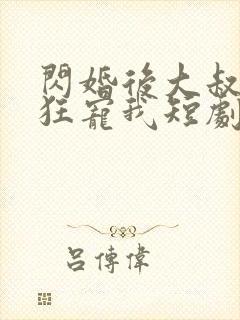 閃婚後大叔
狂寵我短劇
呂傳偉